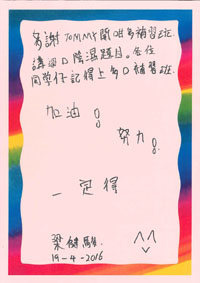 多謝TOMMY開咁多補習班
講過D陰濕題目。各位
同學仔記得上多D補習班.
加油!
努力!
一定得
梁健駿.
19-4-2016